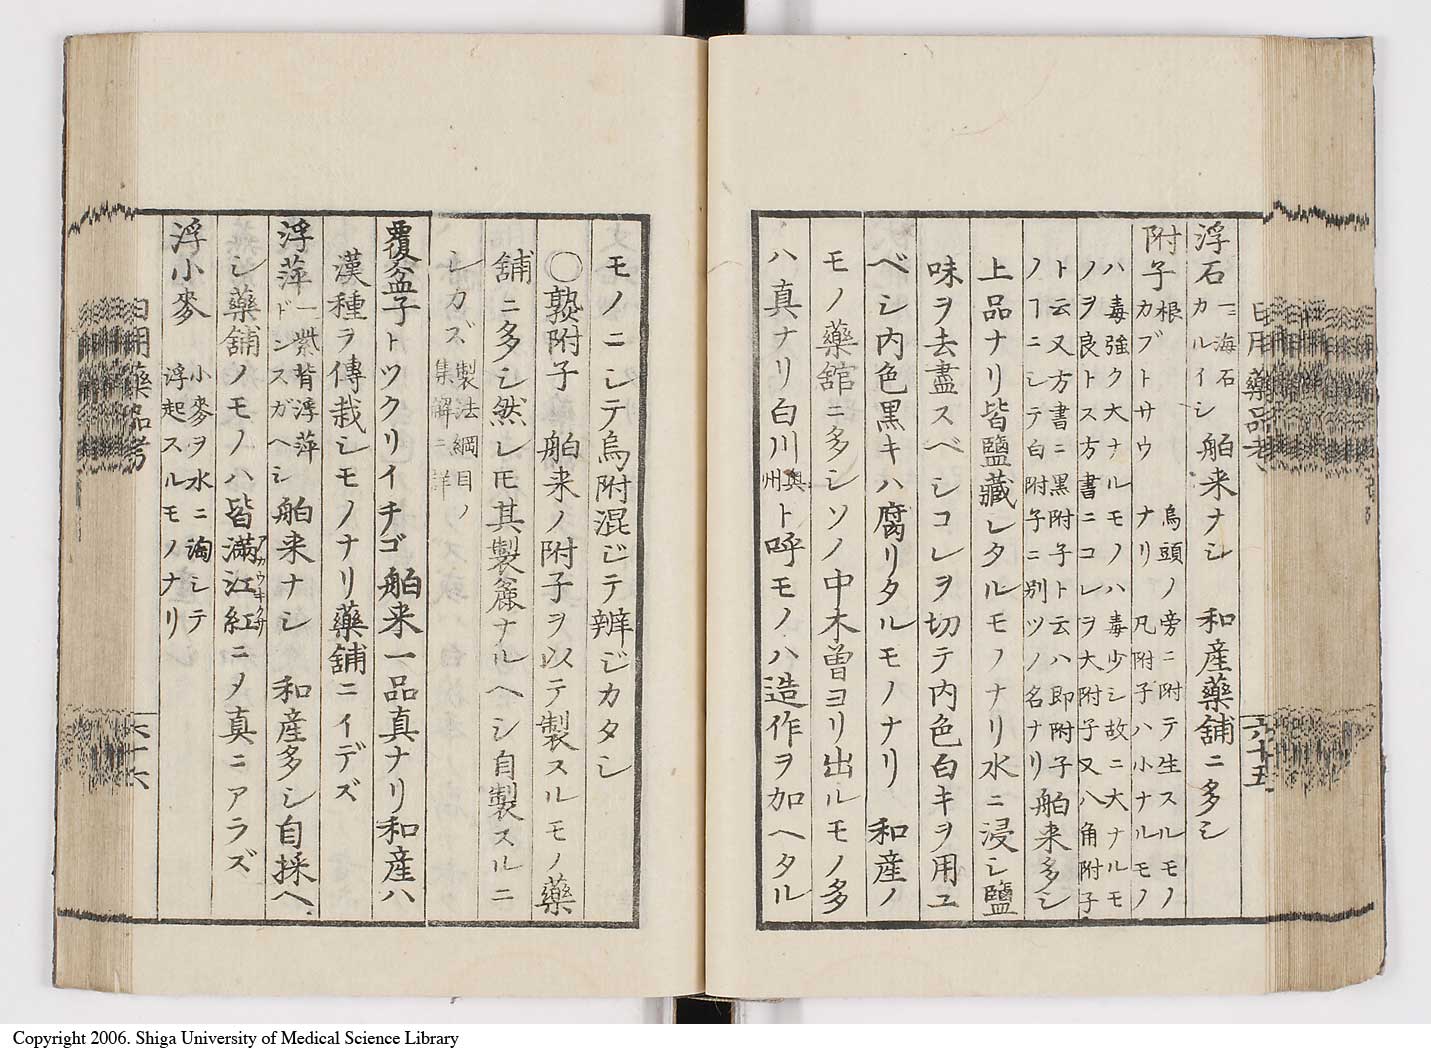 日用藥品考
六十五
浮石 一ニ海石 カルイシ 舶来ナシ 和産藥舖ニ多シ
附子 根 カブトサウ 烏頭ノ旁ニ附テ生スルモノナリ 凡附子ハ小ナルモノ
ハ毒強ク大ナルモノハ毒少シ故ニ大ナルモ
ノヲ良トス方書ニコレヲ大附子又八角附子
ト云又方書ニ黒附子ト云ハ即附子
ノヿニシテ白附子ニ別ツノ名ナリ 舶来多シ
上品ナリ皆鹽藏シタルモノナリ水ニ浸シ鹽
味ヲ去盡スベシコレヲ切テ内色白キヲ用ユ
ベシ内色黒キハ腐リタルモノナリ 和産ノ
モノ藥舘ニ多シソノ中木曽ヨリ出ルモノ多
ハ真ナリ白川奥州ト呼モノハ造作ヲ加ヘタル
モノニシテ烏附混ジテ辨ジカタシ
○熟附子 舶来ノ附子ヲ以テ製スルモノ藥
舖ニ多シ然レㇳモ其製麁ナルヘシ自製スルニ
シカズ 製法綱目ノ集解ニ詳
覆盆子 トツクリイチゴ 舶来一品真ナリ和産ハ
漢種ヲ傳栽シモノナリ藥舖ニイデズ
浮萍 一紫背浮萍 ドンスガヘシ 舶来ナシ 和産多シ自採ヘ
シ藥舖ノモノハ皆滿江紅ニメ真ニアラズ
浮小麥 小麥ヲ水ニ淘シテ浮起スルモノナリ
日用藥品考
六十六
Copyright 2006. Shiga University of Medical Science Library